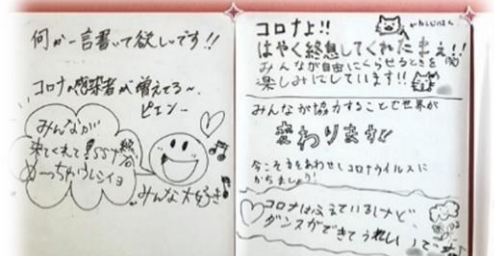 何か一言書いて欲しいです!!
コロナの感染者が増えてる〜
ピエンー
みんなが
来てくれて
めーっちゃ
みんな大好き
コロナよ!!
はやく終息してくれたまえ!!
みんなが自由にくらせるときを
楽しみにしています!!
みんなが協力することで世界が
変わります
今こそ力をあわせしコロナウイルスに
かちましょう!
コロナはふえているけど、
ダンスができてうれしい